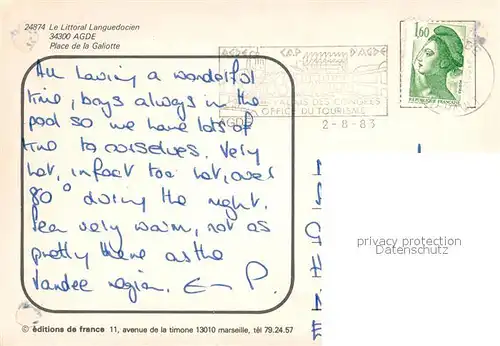 24874 Le Littoral Languedocien
34300 AGDE
Place de la Galiotte
All having a wonderful
time, boys always in the
pool so we have lots of
time to ourselves. Very
hot, infact too hot, over
80° during the night.
Sea very warm, not as
pretty here as the
Vendee region. P.
AGDE CAP D'AGDE
PALAIS DES CONGRES
OFFICE DU TOURISME
AGDE 2-8-83
1,60
REPUBLIQUE FRANÇAISE
privacy protection
© éditions de france 11, avenue de la timone 13010 marseille, tél 79.24.57